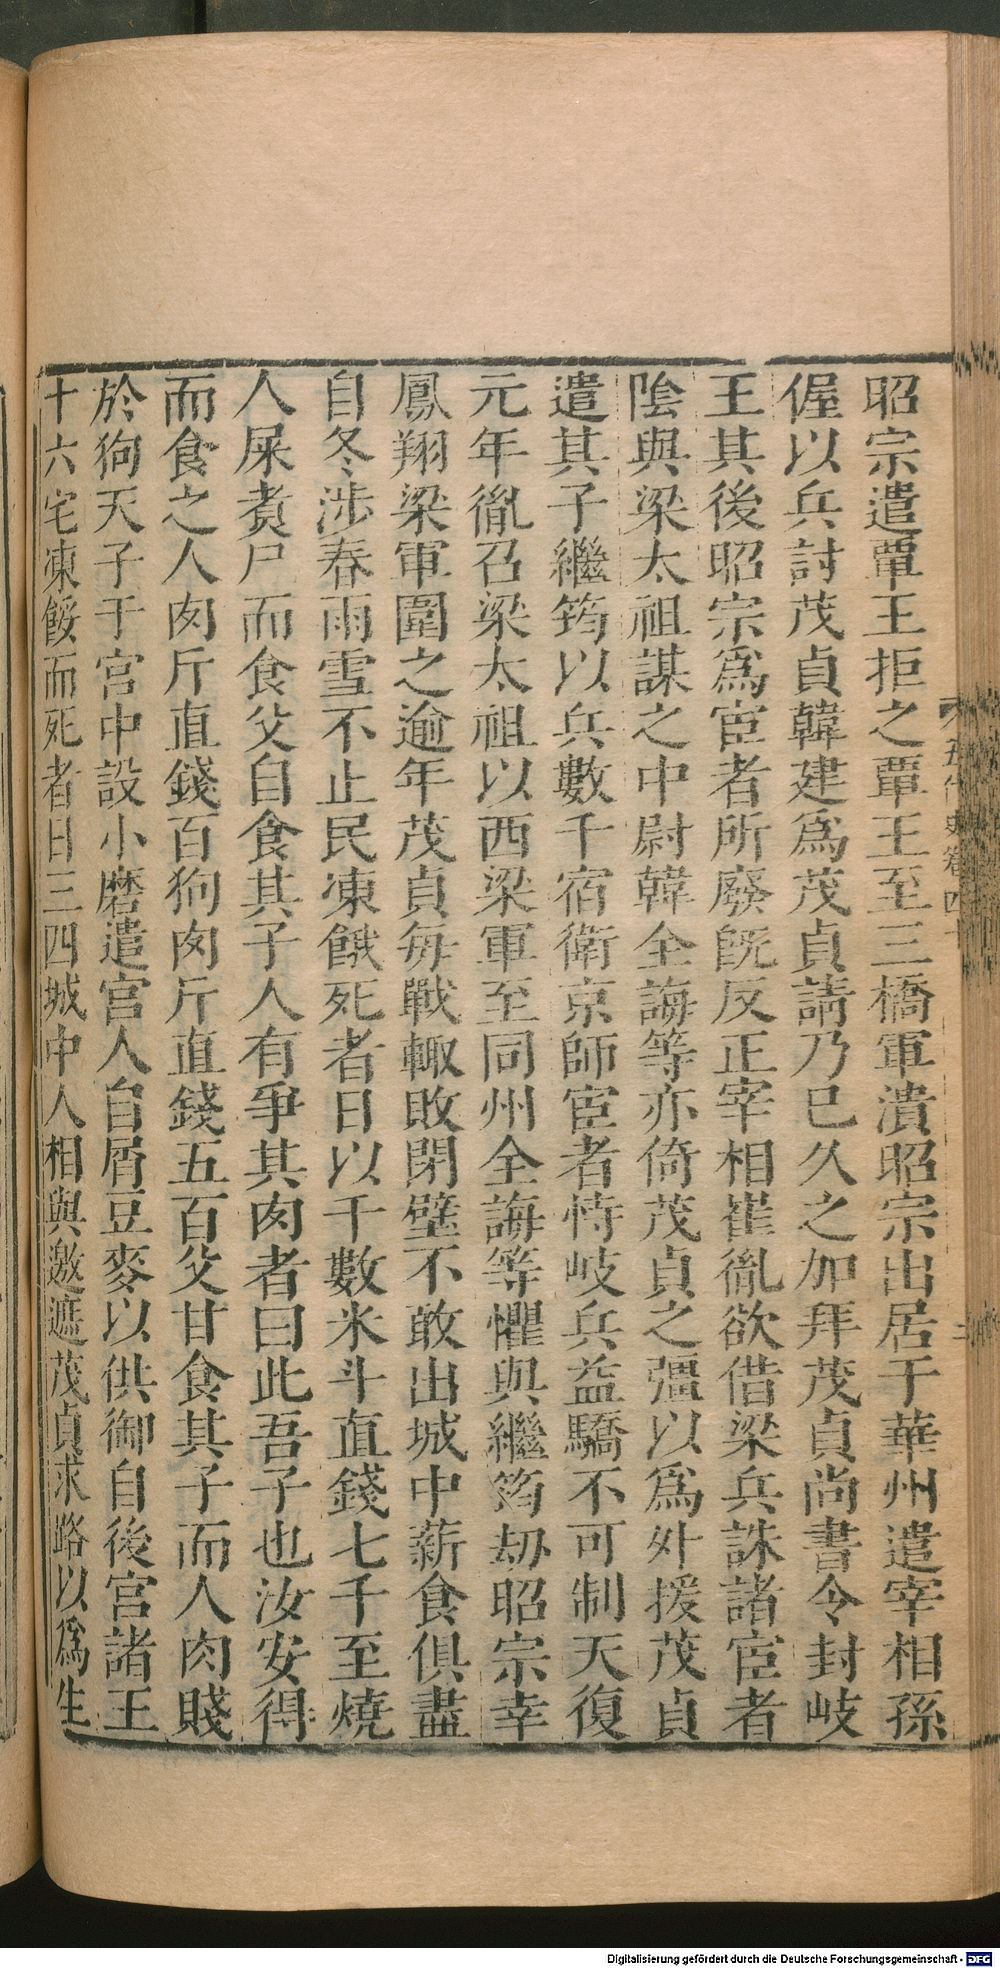 昭宗遣覃王拒之覃王至三橋軍潰昭宗出居于華州遣宰相孫
偓以兵討茂貞韓建爲茂貞請乃已久之加拜茂貞尚書令封岐
王其後昭宗爲宦者所廢旣反正宰相崔胤欲借梁兵誅諸宦者
陰與梁太祖謀之中尉韓全誨等亦倚茂貞之彊以爲外援茂貞
遣其子繼筠以兵數千宿衛京師宦者恃岐兵益驕不可制天復
元年胤召梁太祖以西梁軍至同州全誨等懼與繼筠劫昭宗幸
鳳翔梁軍圍之逾年茂貞每戰輙敗閉壁不敢出城中薪食俱盡
自冬涉春雨雪不止民凍餓死者日以千數米斗直錢七千至燒
人屎煑尸而食父自食其子人有爭其肉者曰此吾子也汝安得
而食之人肉斤直錢百狗肉斤直錢五百父甘食其子而人肉賤
於狗天子于宮中設小磨遣宮人自屑豆麥以供御自後宮諸王
十六宅凍餒而死者日三四城中人相與邀遮茂貞求路以爲生
五代史卷四十
Digitalisierung gefördert durch die Deutsche Forschungsgemeinschaft - DFG